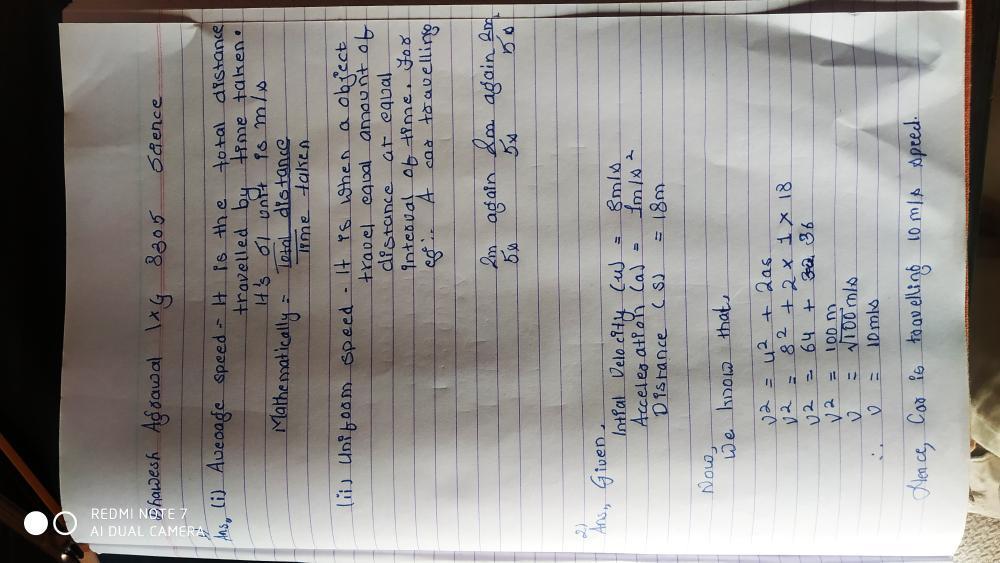 Bhawesh Agrawal IXG 8305 Science
1)
Ans,, (i) Average speed - It is the total distance
travelled by time taken.
It's SI unit is m/s
Mathematically = Total distance
Time taken
(ii) Uniform speed - It is when a object
travel equal amount of
distance at equal
interval of time. For
eg:- A car travelling
2m again 2m again 2m
5s 5s 5s
2)
Ans,, Given,
Intial Velocity (u) = 8m/s
Acceleration (a) = 1m/s²
Distance (s) = 18m
Now,
We know that,
v2 = u² + 2as
v2 = 8² + 2 x 1 x 18
v2 = 64 + 36
v2 = 100m
v = √100 m/s
∴ v = 10m/s
Hence, Car is travelling 10m/s speed.
REDMI NOTE 7
AI DUAL CAMERA